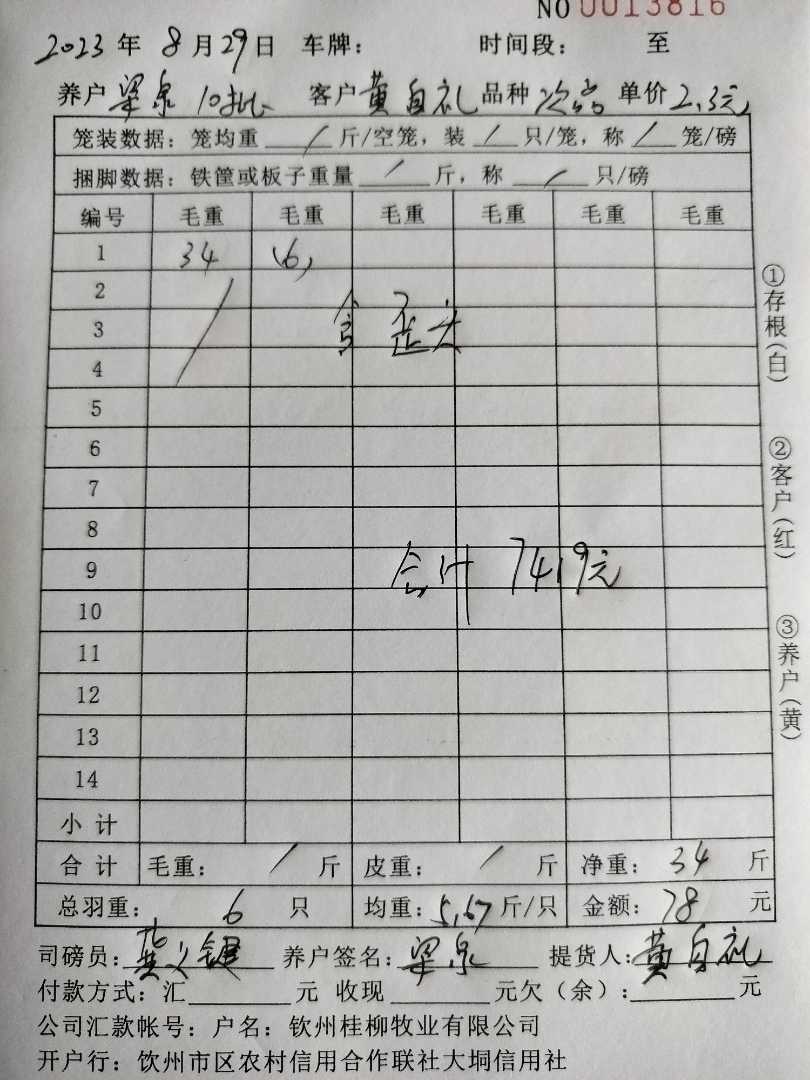 NO 0013816
2023年 8月29日 车牌: 时间段: 至
养户 梁泉 10批 客户 黄自礼 品种 次品 单价 2.3元
笼装数据: 笼均重 / 斤/空笼, 装 / 只/笼, 称 / 笼/磅
捆脚数据: 铁筐或板子重量 / 斤, 称 / 只/磅
编号 毛重 毛重 毛重 毛重 毛重 毛重
1 34 (6)
2
3 歪头
4
5
6
7
8
9 合计 7419元
10
11
12
13
14
小计
合计 毛重: / 斤 皮重: / 斤 净重: 34 斤
总羽重: 6 只 均重: 5.67 斤/只 金额: 78 元
司磅员: 键 养户签名: 梁泉 提货人: 黄自礼
付款方式: 汇 元 收现 元欠(余): 元
公司汇款帐号: 户名: 钦州桂柳牧业有限公司
开户行: 饮州市区农村信用合作联社大垌信用社
①存根(白)
②客户(红)
③养户(黄)